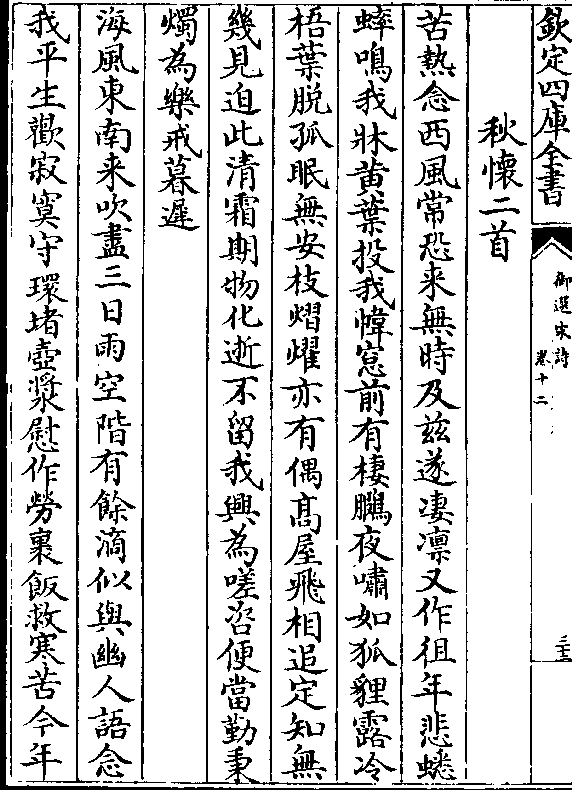 欽定四庫全書
御選宋詩
卷十二
三十三
秋懷二首
苦熱念西風常恐来無時及兹遂凄凛又作徂年悲蟋
蟀鳴我牀黄葉投我幃窻前有棲鵩夜嘯如狐貍露冷
梧葉脱孤眠無安枝熠燿亦有偶髙屋飛相追定知無
幾見迫此清霜期物化逝不留我興為嗟咨便當勤秉
燭為樂戒暮遲
海風東南来吹盡三日雨空階有餘滴似與幽人語念
我平生歡寂寞守環堵壺漿慰作勞裹飯救寒苦今年